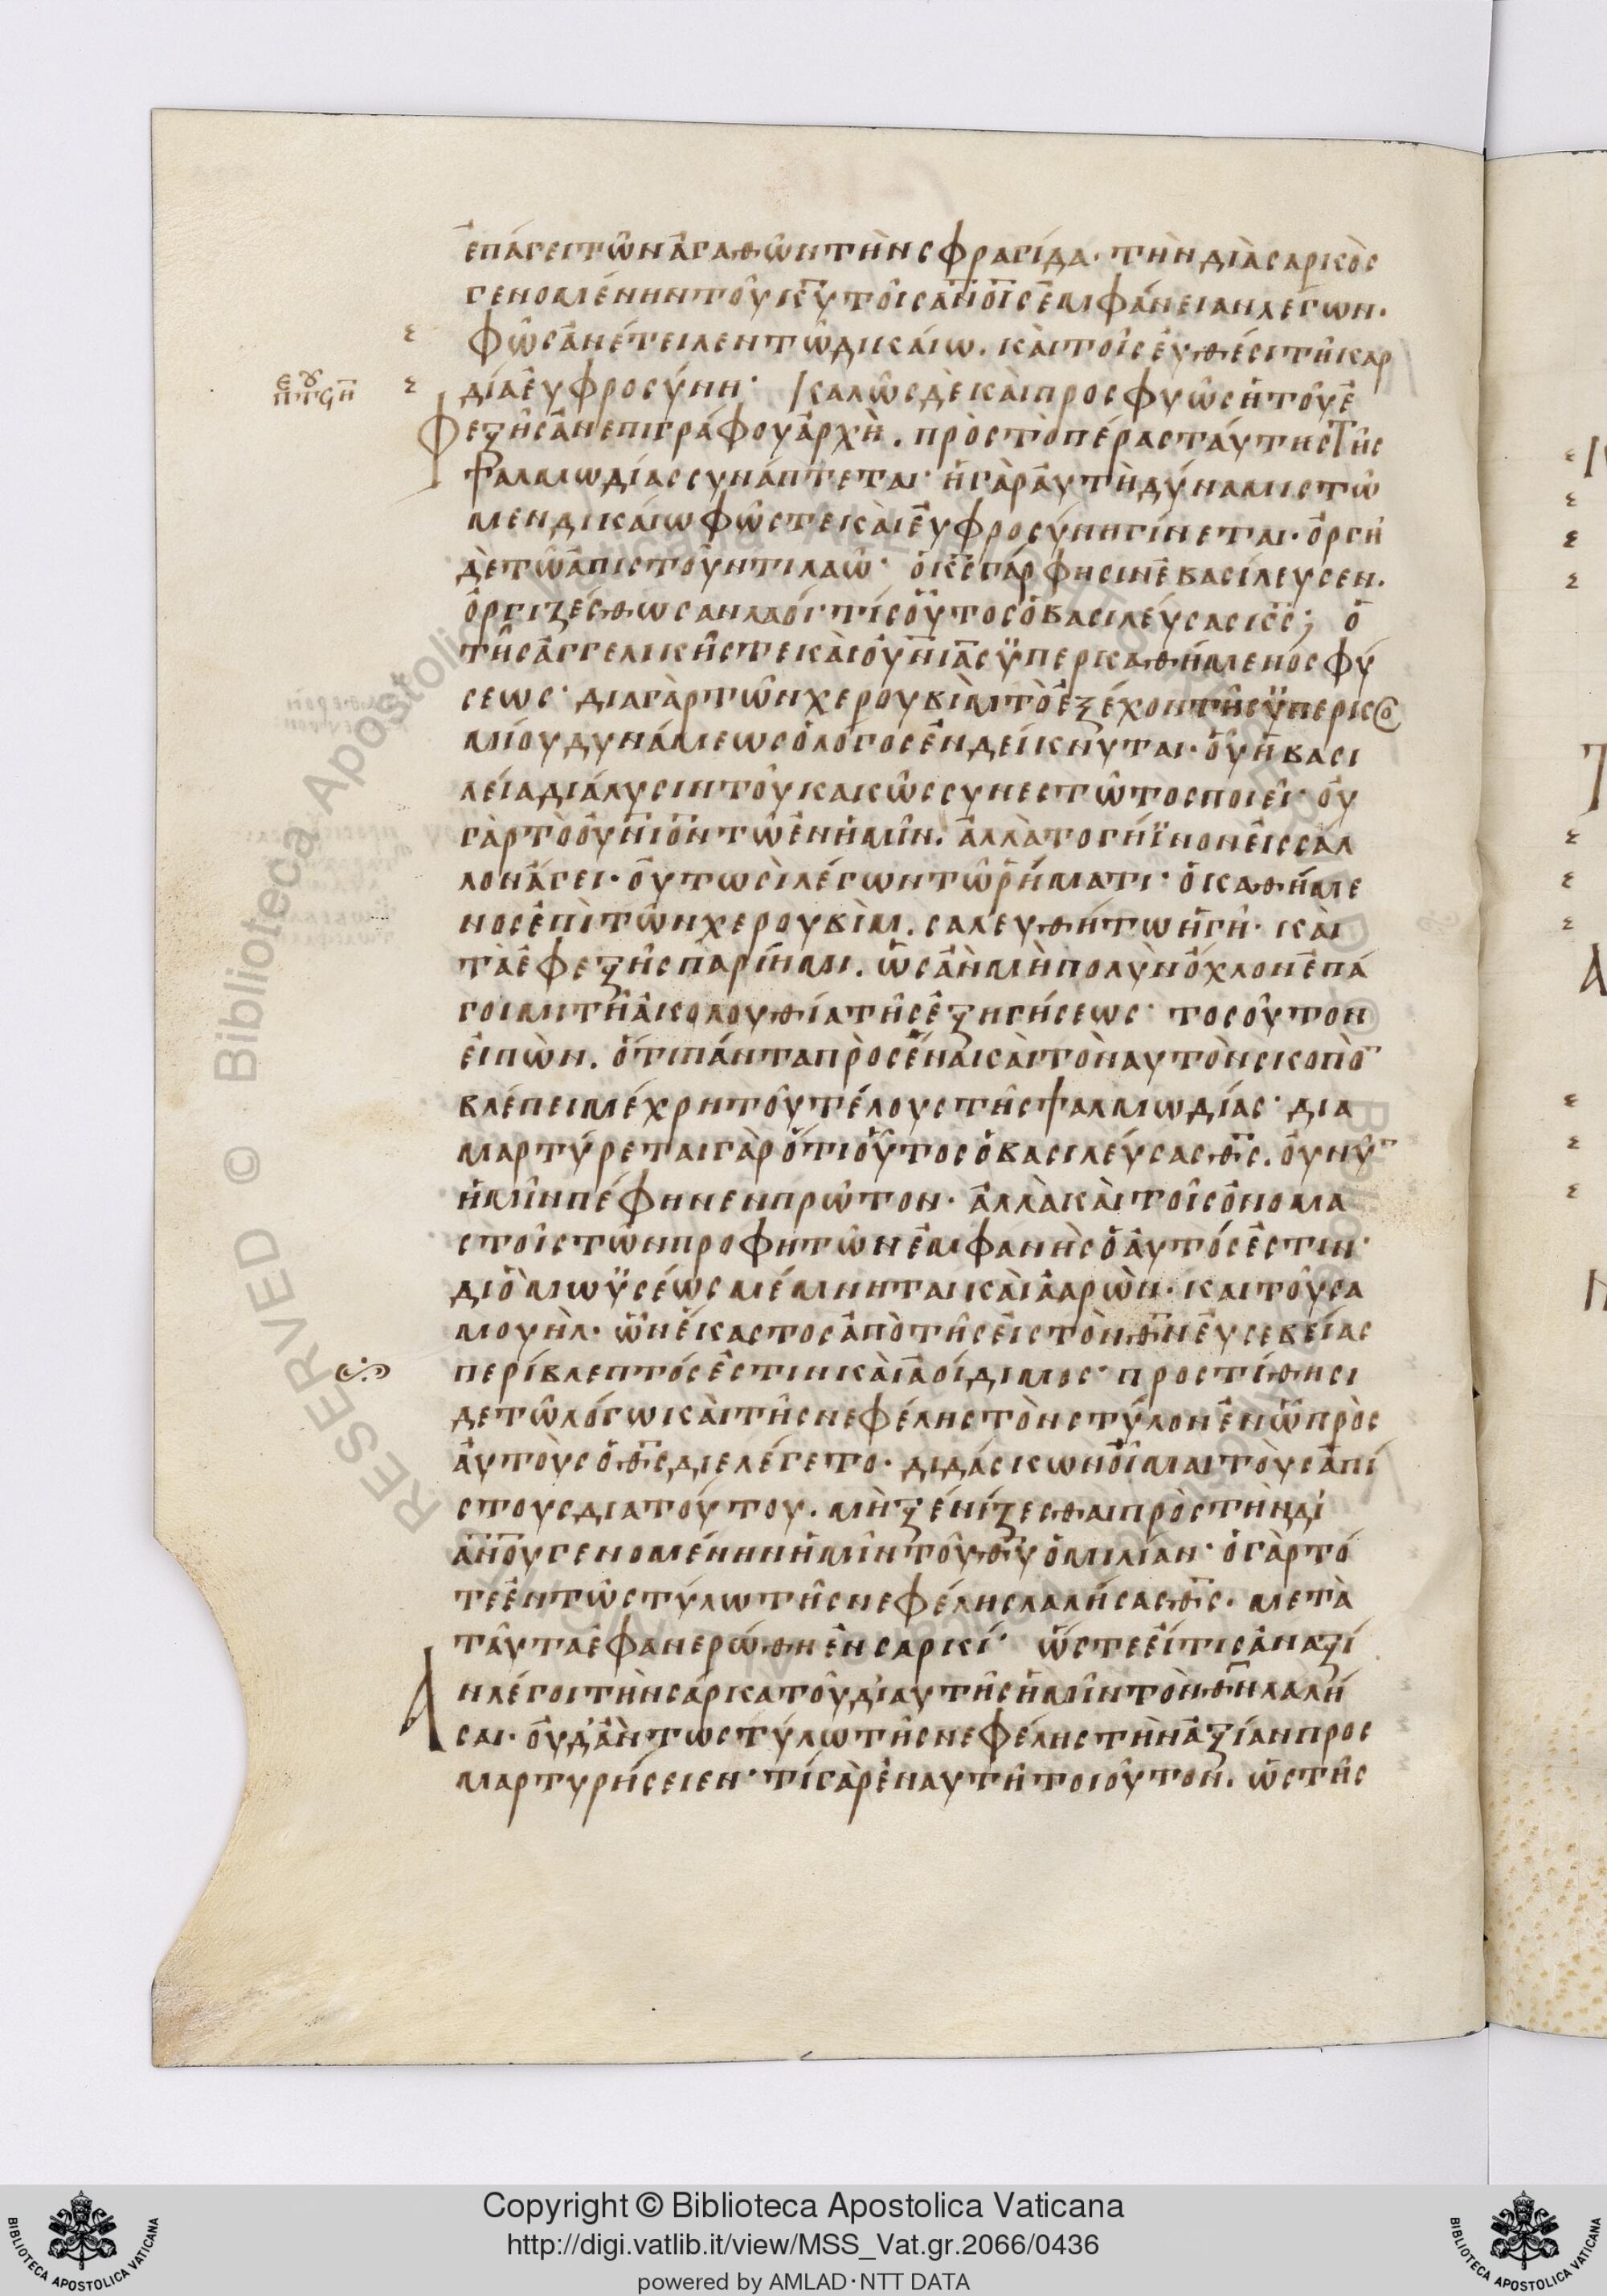 ἐπάγει τῶν ἀγαθῶν τὴν σφραγίδα· τὴν διὰ σαρκὸς
γενομένην τοῦ κ̅υ̅ τοῖς ἀ̅ν̅ο̅ι̅ς ἐμφάνειαν λέγων.
φῶς ἀνέτειλεν τῶ δικάιω. κὰι τοῖς ἐυθέσι τῆ καρ
δία ἐυφροσύνη· καλῶς δὲ κὰι προσφυῶς ἡ τοῦ ἐ
φεξῆς ἀνεπιγράφου ἀρχὴ. πρὸς τὸ πέρας ταύτης τῆς
ψαλμωδίας συνάπτεται· ἡ γὰρ ἀυτὴ δύναμις τῶ
μεν δικάιω φῶς τε κὰι ἐυφροσύνη γίνεται· ὀργὴ
δὲ τῶ ἀπιστοῦντι λαῶ· ὁ κ̅ς̅ γάρ φησιν ἐβασίλευσεν.
ὀργιζέσθωσαν λαοί· τίς οὗτος ὁ βασιλέυσας κ̅ς̅; ὁ
τῆς ἀγγελικῆς τε κὰι ὀυ̅ν̅ι̅ας ὑπερκαθήμενος φύ
σεως· δια γὰρ τῶν χερουβὶμ τὸ ἐξέχον τῆς ὑπερκο
μίου δυνάμεως ὁ λόγος ἐνδείκνυται· ὁῦ ἡ βασι
λεία διάλυσιν τοῦ κακῶς συνεστῶτος ποιεῖ· ὀυ
γὰρ τὸ ὀυ̅ν̅ι̅ον τῶ ἐν ἡμῖν. ἀλλὰ το γήϊνον ἐις σάλ
λον ἄγει· ὀυτωσὶ λέγων τῶ ῥήματι· ὁ καθήμε
νος ἐπὶ τῶν χερουβὶμ. σαλευθήτω ἡ γῆ· κὰι
τὰ ἐφεξῆς παρίημι. ὡς ἀν μὴ πολὺν ὄχλον ἐπά
γοιμι τῆ ἀκολουθία τῆς ἐξηγήσεως· τοσοῦτον
ἐιπὼν. ὅτι πάντα πρὸς ἕνα κὰι τὸν αυτὸν σκοπὸ̅
βλέπει μέχρη τοῦ τέλους τῆς ψαλμωδίας· δια
μαρτύρεται γὰρ ὅτι οὗτος ὁ βασιλέυσας θ̅ς̅. ὀυ νῦ̅
ἡμῖν πέφηνεν πρῶτον· ἀλλὰ κὰι τοῖς ὀνομα
στοῖς τῶν προφητῶν ἐμφανὴς ὁ ἀυτός ἐστιν·
διὸ μωϋσέως μέμνηται κὰι ἀαρὼν· και τοῦ σα
μουὴλ· ὧν ἕκαστος ἀπὸ τῆς ἐις τὸν θ̅ν̅ ἐυσεβείας
περίβλεπτός ἐστιν κὰι ἀοίδιμος· προστίθησι
δε τῶ λόγω κὰι τῆς νεφέλης τὸν στύλον ἐν ὧ πρὸς
ἀυτοὺς ὁ θ̅ς̅ διελέγετο· διδάσκων ὀῖμαι τὸυς ἀπί
στους δια τούτου. μὴ ξενίζεσθαι πρὸς τὴν δι
ἀ̅ν̅ο̅υ γενομένην ἡμῖν τοῦ θ̅υ̅ ὁμιλίαν· ὁ γὰρ τό
τε ἐν τῶ στύλω τῆς νεφέλης λαλήσας θ̅ς̅. μετὰ
ταῦτα ἐφανερώθη ἐν σαρκί· ὥστε ἐί τις ἀναξί
ην λέγοι τὴν σάρκα τοῦ δι αυτῆς ἡμῖν τὸν θ̅ν̅ λαλή
σαι· ὀυδ ἀν τω στύλω τῆς νεφέλης τὴν ἀξίαν προσ
μαρτυρήσειεν· τί γὰρ ἐν αυτῆ τοιοῦτον. ὡς τῆς
Copyright © Biblioteca Apostolica Vaticana
http://digi.vatlib.it/view/MSS_Vat.gr.2066/0436
powered by AMLAD·NTT DATA